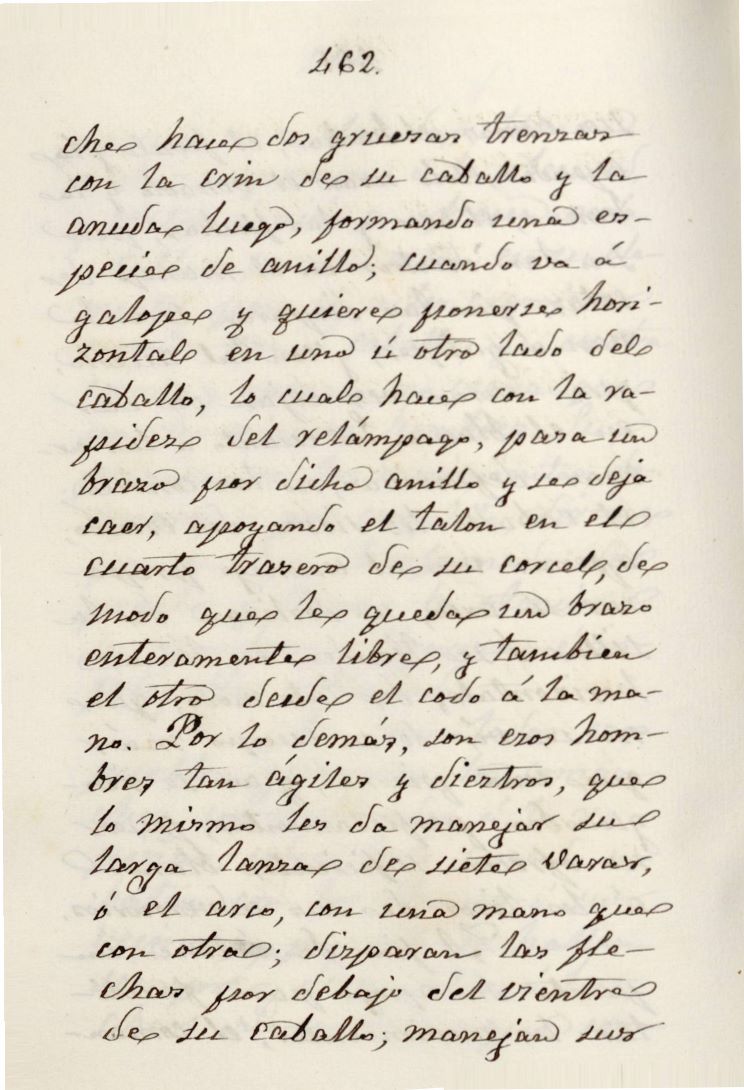 462.
che hace dos gruesas trenzas
con la crin de su caballo y la
anuda luego, formando una es-
pecie de anillo; cuando va á
galope y quiere ponerse hori-
zontal en uno ú otro lado del
caballo, lo cual hace con la ra-
pidez del relámpago, pasa un
brazo por dicho anillo y se deja
caer, apoyando el talon en el
cuarto trasero de su corcel, de
modo que le queda un brazo
enteramente libre, y tambien
el otro desde el codo á la ma-
no. Por lo demás, son esos hom-
bres tan ágiles y diestros, que
lo mismo les da manejar su
larga lanza de siete varas,
ó el arco, con una mano que
con otra; disparan las fle-
chas por debajo del vientre
de su caballo; manejan sus